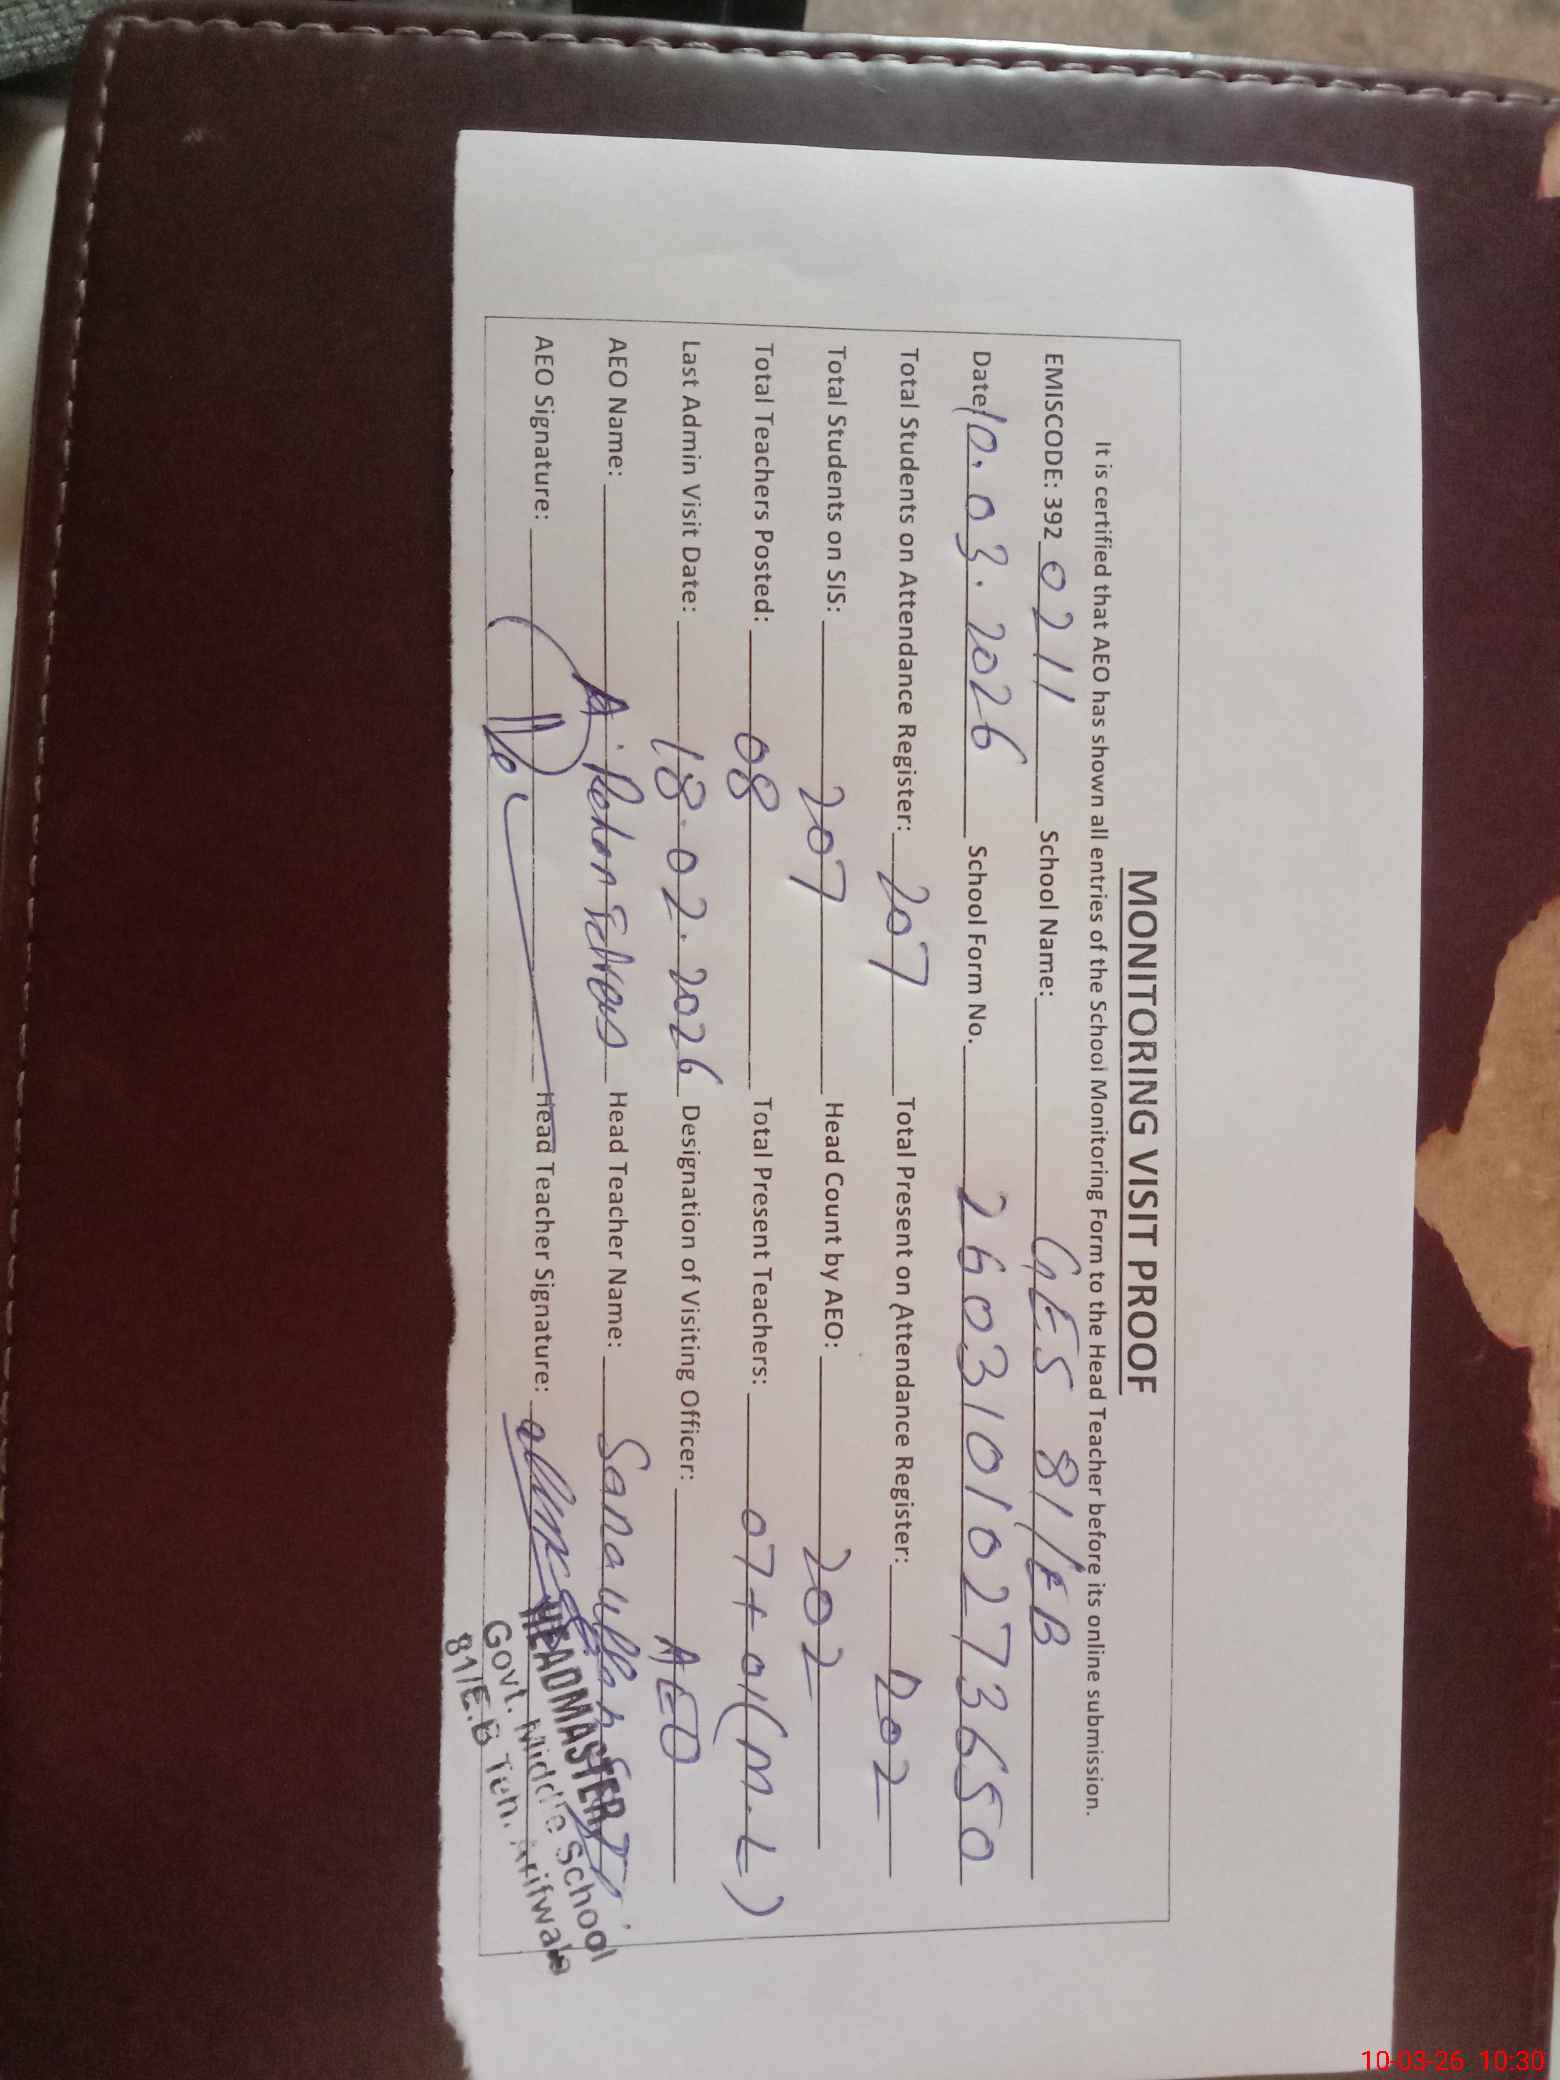 MONITORING VISIT PROOF
It is certified that AEO has shown all entries of the School Monitoring Form to the Head Teacher before its online submission.
EMISCODE: 392 0211 School Name: GES 81/EB
Date: 10.03.2026 School Form No. 26031010273650
Total Students on Attendance Register: 207 Total Present on Attendance Register: 202
Total Students on SIS: 207 Head Count by AEO: 202
Total Teachers Posted: 08 Total Present Teachers: 07+01(M.L)
Last Admin Visit Date: 18.02.2026 Designation of Visiting Officer: AEO
AEO Name: A. Rehan Head Teacher Name: Sanaullah
AEO Signature: Head Teacher Signature:
HEADMASTER
Govt. Middle School
81/E.B Teh. Arifwala
10-03-26 10:30